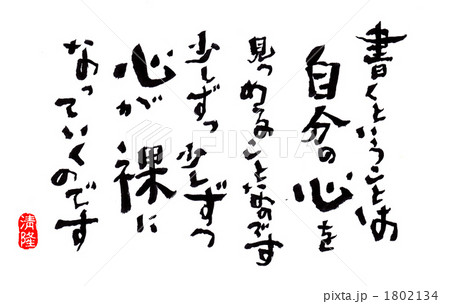 書くということは
自分の心を
見つめることなのです
少しずつ少しずつ
心が裸に
なっていくのです
清隆
PIXTA
pixta.jp - 1802134